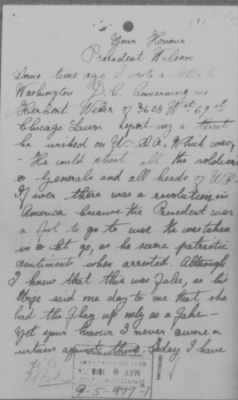 Your Honour
President Wilson
Some time ago I wrote a
Washington D.C. concerning one
Herbert of 3608 Wst 69 st
Chicago Lawn report-ing a threat
he worked on W. which was,
He would shoot all the soldiers
or Generals and all heads of
If ever there was a revolution in
America because the President was
a to go to war. He was taken
in let go, as he swore patriotic
sentiment when arrested. Although
I knew that this was false, as his
wife said one day to me that she
had the flag up only as a fake-
Yet your honour I never swore a
witness against them. Today I have
MAY 8 1918
9-5-977-1